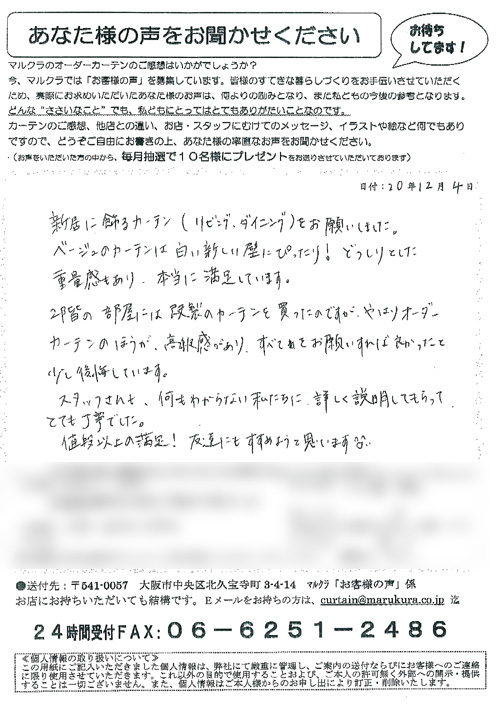 あなた様の声をお聞かせください
お待ち
してます!
マルクラのオーダーカーテンのご感想はいかがでしょうか?
今、マルクラでは「お客様の声」を募集しています。皆様のすてきな暮らしづくりをお手伝いさせていただく
ため、実際にお求めいただいたあなた様のお声は、何よりの励みとなり、また私どもの今後の参考となります。
どんな“ささいなこと”でも、私どもにとってはとてもありがたいことなのです。
カーテンのご感想、他店との違い、お店・スタッフにむけてのメッセージ、イラストや絵など何でもあり
ですので、どうぞご自由にお書きの上、あなた様の率直なお声をお聞かせください。
(お声をいただいた方の中から、毎月抽選で10名様にプレゼントをお送りさせていただいております)
日付:20年12月4日
新居に飾るカーテン(リビング、ダイニング)をお願いしました。
ベージュのカーテンは白い新しい壁にぴったり! どっしりとした
重量感もあり、本当に満足しています。
2階の部屋には既製のカーテンを買ったのですが、やはりオーダー
カーテンのほうが、高級感があり、すべてをお願いすれば良かったと
少し後悔しています。
スタッフさんも、何もわからない私たちに、詳しく説明してもらって、
とても丁寧でした。
値段以上の満足! 友達にもすすめようと思います
●送付先:〒541-0057 大阪市中央区北久宝寺町3-4-14 マルクラ「お客様の声」係
お店にお持ちいただいても結構です。Eメールをお持ちの方は、curtain@marukura.co.jp 迄
24時間受付FAX:06-6251-2486
≪個人情報の取り扱いについて≫
この用紙にご記入いただきました個人情報は、弊社にて厳重に管理し、ご案内の送付ならびにお客様へのご連絡
に限り使用させていただきます。これ以外の目的で使用することおよび、ご本人の許可無く外部への開示・提供
することは一切ございません。また、個人情報はご本人様からのお申し出により訂正・削除いたします。